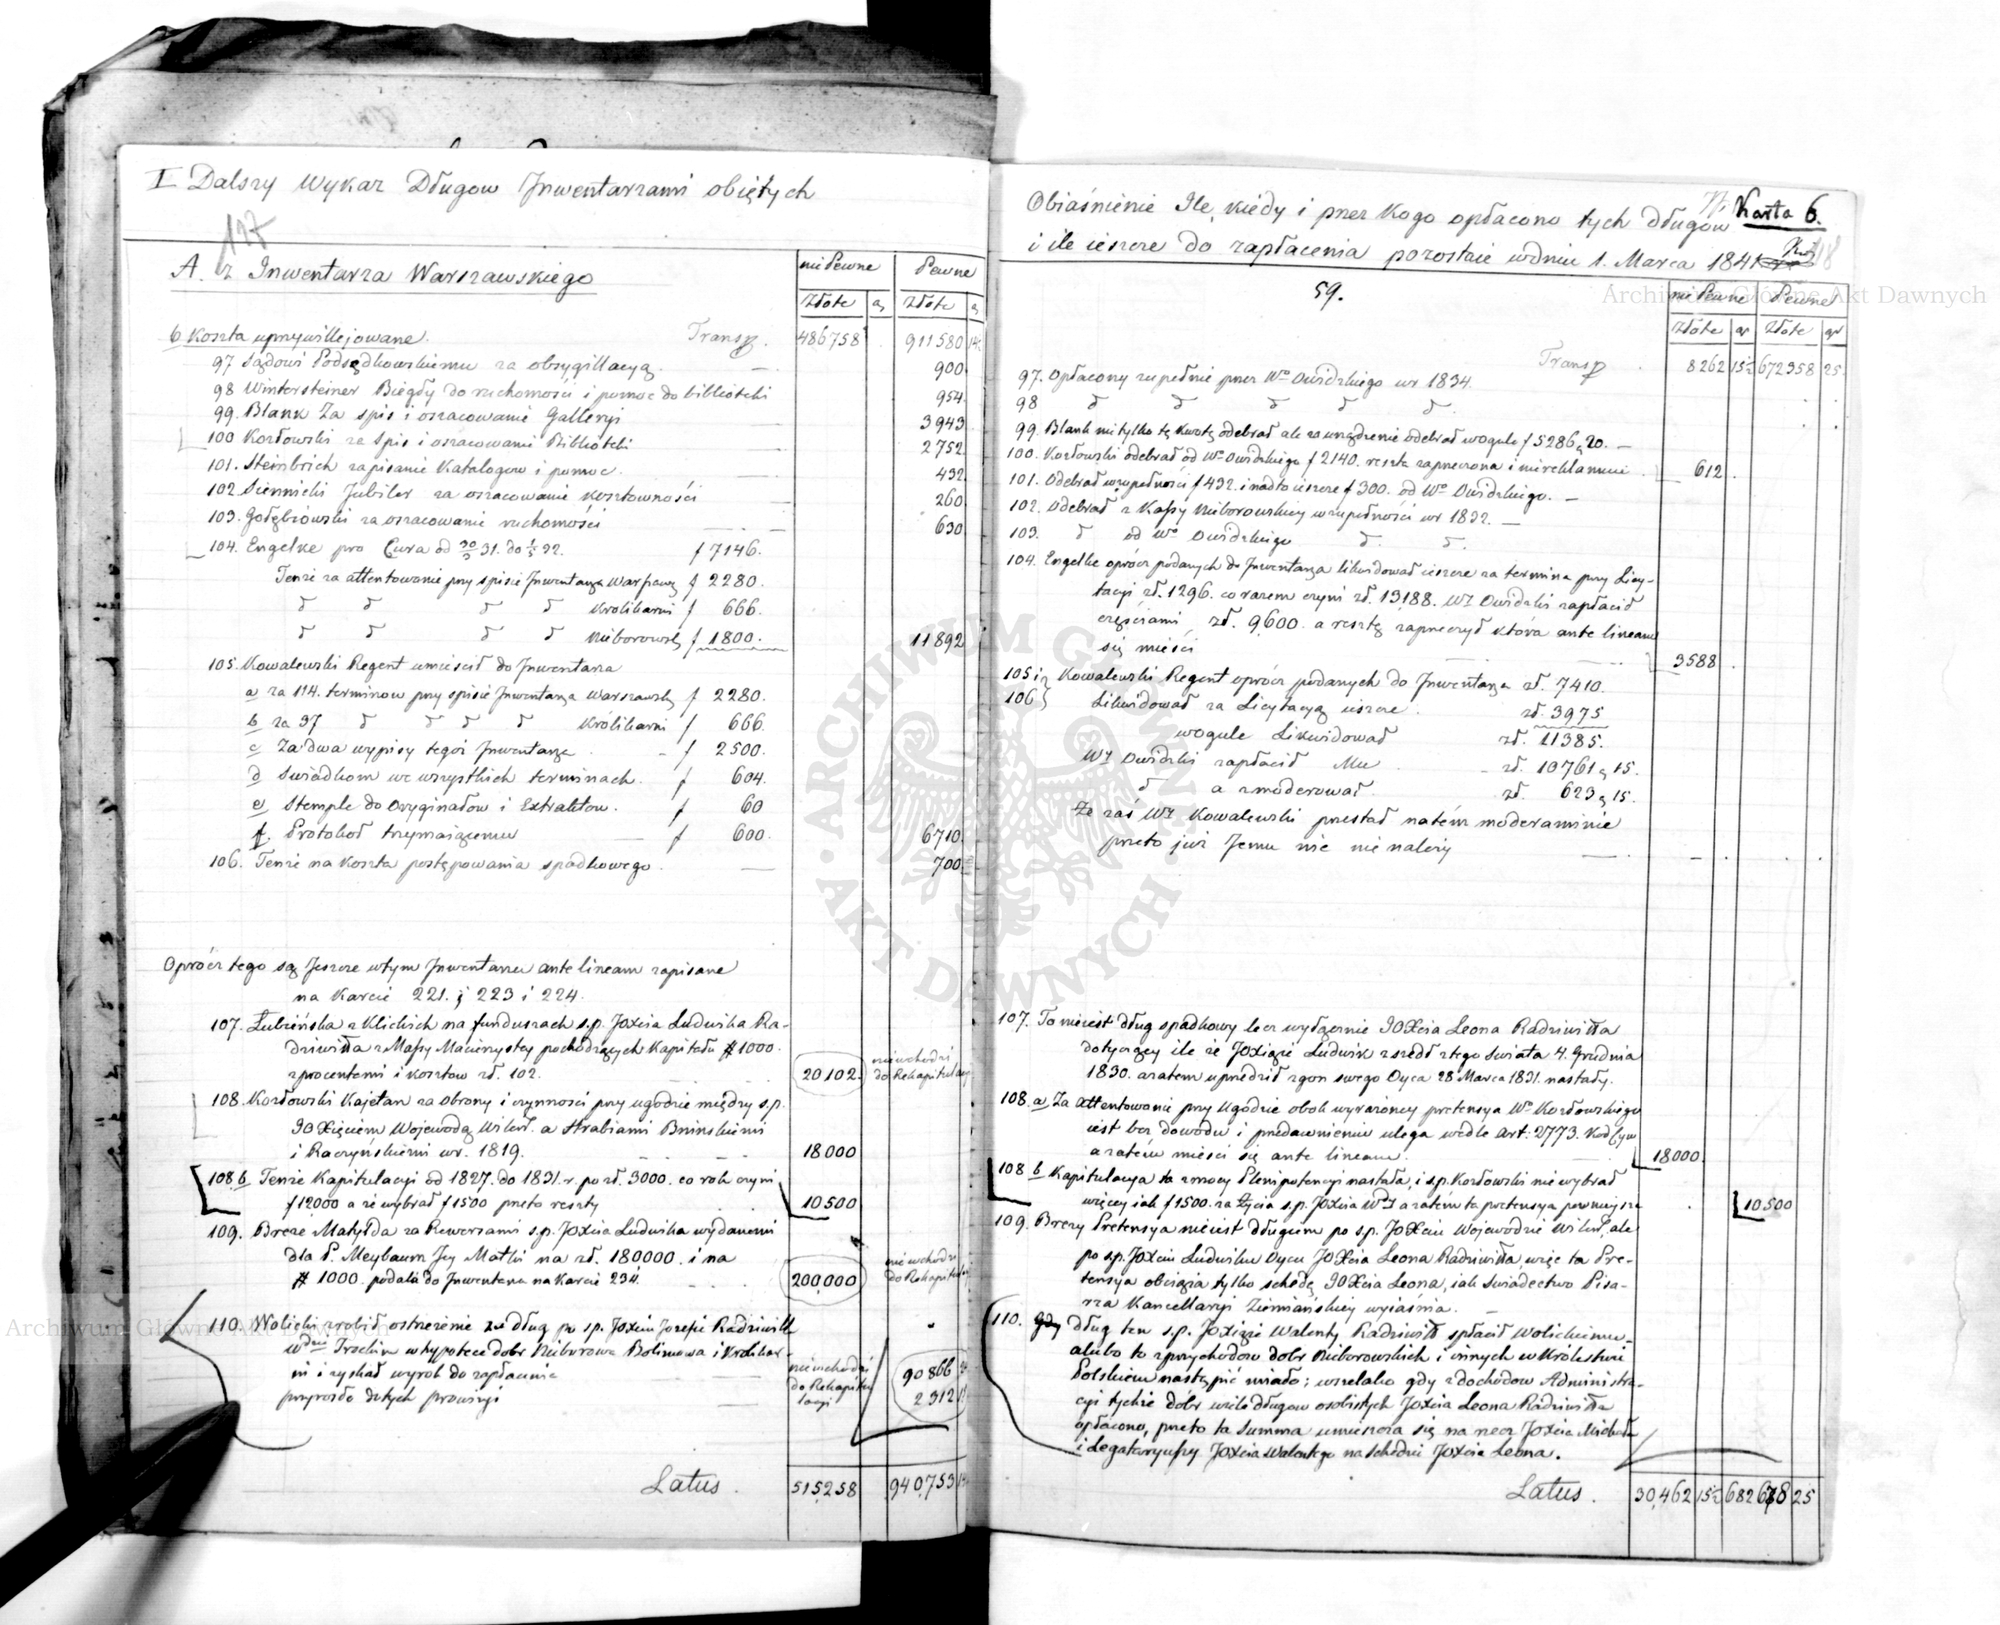 I Dalszy Wykaz Długow Inwentarzami obiętych
117
A. z Inwentarza Warszawskiego
nie Pewne Pewne
Złote gr Złote g
b Koszta uprzywillejowane. Transp. 486758 911580 14
97 Sądowi Podsędkowskiemu za obsygillacyą. 900.
98 Wintersteiner Biegły do ruchomości i pomoc do biblioteki 954.
99. Blank Za spis i oszacowanie Galleryi 3943
100 Kozłowski za Spis i oszacowanie Biblioteki 2752.
101. Steinbrich zapisanie Katalogow i pomoc. 432.
102 Siennicki Jubiler za oszacowanie kosztowności 260.
103. Gołębiowski za oszacowanie ruchomości 630.
104. Engelke pro Cura od 31. do 32. f 7146.
Tenże za attentowanie przy spisie Inwentarza Warszawsk f 2280.
d d d d Krolikarni f 666.
d d d d Nieborowsk f 1800. 11892
105. Kowalewski Regent umieścił do Inwentarza
a za 114. terminow przy spisie Inwentarza Warszawsk f 2280.
b za 37 d d d d Królikarni f 666.
c Za dwa wypisy tegoż Inwentarza f 2500.
d Swiadkom we wszystkich terminach. f 604.
e Stemple do Oryginałow i Extraktow. f 60
f. Protokoł trzymaiącemu f 600. 6710.
106. Tenże na Koszta postępowania spadkowego. 700.
Oprócz tego są Jeszcze w tym Inwentarzu ante lineam zapisane
na Karcie 221. i 223 i 224.
107. Łubieńska z Klickich na funduszach s.p. JOXcia Ludwika Ra-
dziwiłła z Massy Macierzystey pochodzących Kapitału # 1000.
z procentami i kosztow zł. 102. 20102. nie wchodzi
do Rekapitulacyi
108. Kozłowski Kajetan za obrony i czynności przy ugodzie między s.p.
JO Xięciem Wojewodą Wileń. a Hrabiami Bnińskiemi
i Raczyńskiemi w r. 1819. 18000
108 b Tenże Kapitulacyi od 1827. do 1831. r. po zł. 3000. co rok czyni
f 12000 a że wybrał f 1500 przeto reszty 10500
109. Breze Matylda za Rewersami s.p. JOXcia Ludwika wydanemi
dla P. Meybaum Jey Matki na zł. 180000. i na
# 1000. podała do Inwentarza na Karcie 234. 200,000 nie wchodzi
do Rekapitulacyi
110. Wolicki zrobił ostrzeżenie za dług po s.p. JOXciu Jozefie Radziwille
Wdzie Trockim w hypotece dobr Nieborowa Bolimowa i Krolikar-
ni i zyskał wyrok do zapłacenia
przyrosło do tych prowizyi
nie wchodzi
do Rekapitu
lacyi
90866
2312
Latus. 515258 940,753
77. Karta 6.
Obiaśnienie Ile, kiédy i przez Kogo opłacono tych długow
i ile ieszcze do zapłacenia pozostaie w dniu 1. Marca 1841
59.
nie Pewne Pewne
Złote gr Złote gr
Transp 8262 15½ 672358 25.
97. Opłacony zupełnie przez Wo Owidzkiego w r 1834.
98 d d d d d.
99. Blank nie tylko tę kwotę odebrał ale za urządzenie odebrał wogule f 5286 g 20. —
100. Kozłowski odebrał od Wo Owidzkiego f 2140. reszta zaprzeczona i nie reklamuie 612
101. Odebrał w zupełności f 432. i nadto ieszcze f 300. od Wo Owidzkiego. —
102. Odebrał z Kassy Nieborowskiey w zupełności w r 1832. —
103. d od Wo Owidzkiego d. d.
104. Engelke oprócz podanych do Inwentarza likwidował ieszcze za termina przy Licy-
tacyi zł. 1296. co razem czyni zł. 13188. WJ Owidzki zapłacił
częściami zł. 9,600. a resztę zaprzeczył która ante lineam
się mieści 3588
105 i Kowalewski Regent oprócz podanych do Inwentarza zł. 7410.
106 Likwidował za Licytacyą ieszcze. zł. 3975
wogule Likwidował zł. 11385.
WJ Owidzki zapłacił Mu zł. 10761 g 15.
d a zmoderował. zł. 623 g 15.
Ze zaś WJ Kowalewski przestał na tém moderaminie
przeto już Jemu nic nie należy
107. To nie iest dług spadkowy lecz wyłącznie JOXcia Leona Radziwiłła
dotyczący ile że JOXiąże Ludwik zszedł z tego świata 4. Grudnia
1830. a zatem uprzedził zgon swego Oyca 28 Marca 1831. nastały.
108. a Za Attentowanie przy Ugodzie obok wyrażoney pretensya Wo Kozłowskiego
iest bez dowodu i przedawnieniu ulega wedle Art: 2773. Kod Cyw
a zatém mieści się ante lineam. 18000
108 b Kapitulacya ta z mocy Plenipotencyi nastała, i s.p. Kozłowski nie wybrał
więcey iak f 1500. za życia s.p. JOXcia Wdy a zatém ta pretensya pewnieysza 10500
109. Brezy Pretensya nie iest długiem po s.p. JOXciu Wojewodzie Wileń, ale
po s.p. JOXciu Ludwiku Oycu JOXcia Leona Radziwiłła, więc ta Pre-
tensya obciąża tylko schedę JOXcia Leona, iak Świadectwo Pisa-
rza Kancellaryi Ziemiańskiey wyiaśnia.
110. gdy dług ten s.p. JOXiąże Walenty Radziwiłł spłacił Wolickiemu,
alubo to z przychodow dobr Nieborowskich i innych w Królestwie
Polskiem nastąpić miało; wszelako gdy z dochodow Administra-
cyi tychże dobr wiele długow osobistych JOXcia Leona Radziwiłła
opłacono, przeto ta Summa umieszcza się na rzecz JOXcia Michała
i Legataryuszy JOXcia Walentego na schedzie JOXcia Leona.
Latus. 30,462 15½ 682 25
Archiwum Główne Akt Dawnych
Archiwum Główne Akt Dawnych
ARCHIWUM GŁÓWNE
AKT DAWNYCH